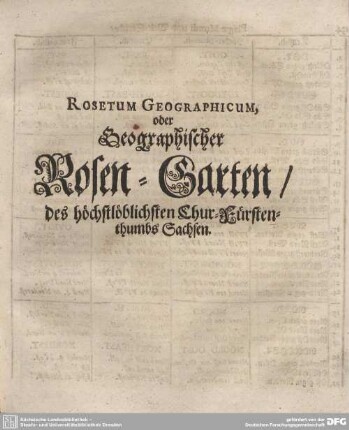 ROSETUM GEOGRAPHICUM,
oder
Geographischer
Rosen-Garten /
des höchstlöblichsten Chur-Fürsten-
thumbs Sachsen.
Sächsische Landesbibliothek -
Staats- und Universitätsbibliothek Dresden
gefördert von der
Deutschen Forschungsgemeinschaft
DFG